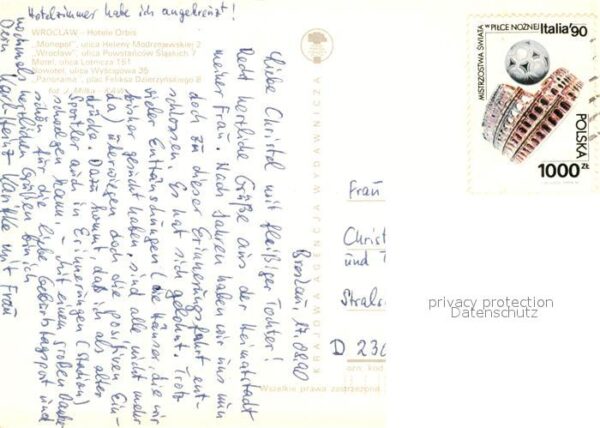 Hotelzimmer habe ich angekreuzt!
WROCŁAW - Hotele Orbis
„Monopol", ulica Heleny Modrzejewskiej 2
„Wrocław", ulica Powstańców Śląskich 7
Motel, ulica Lotnicza 151
Novotel, ulica Wyścigowa 35
„Panorama", plac Feliksa Dzierżyńskiego 8
fot. J. Milka
KRAJOWA AGENCJA WYDAWNICZA
Breslau, 17.08.90
Liebe Christel mit fleißiger Tochter!
Recht herzliche Grüße aus der Heimatstadt
meiner Frau. Nach Jahren haben wir uns nun
doch zu dieser Erinnerungsfahrt ent-
schlossen. Es hat sich gelohnt. Trotz
vieler Enttäuschungen (die Häuser, die wir
bisher gesucht haben, sind alle nicht mehr
da) überwiegen doch die positiven Ein-
drücke. Dazu kommt, daß ich als alter
Sportler auch in Erinnerungen (Stadion)
schwelgen kann. – Mit einem großen Danke-
schön für die liebe Geburtstagspost und
nochmals herzlichen Grüßen bin ich
Dein Karl-Heinz mit Frau
MISTRZOSTWA ŚWIATA W PIŁCE NOŻNEJ Italia'90
POLSKA
1000 zł
Frau
Christ
und T
Strals
D 236
ozn. kod
Wszelkie prawa zastrzeżone
privacy protection
Datenschutz